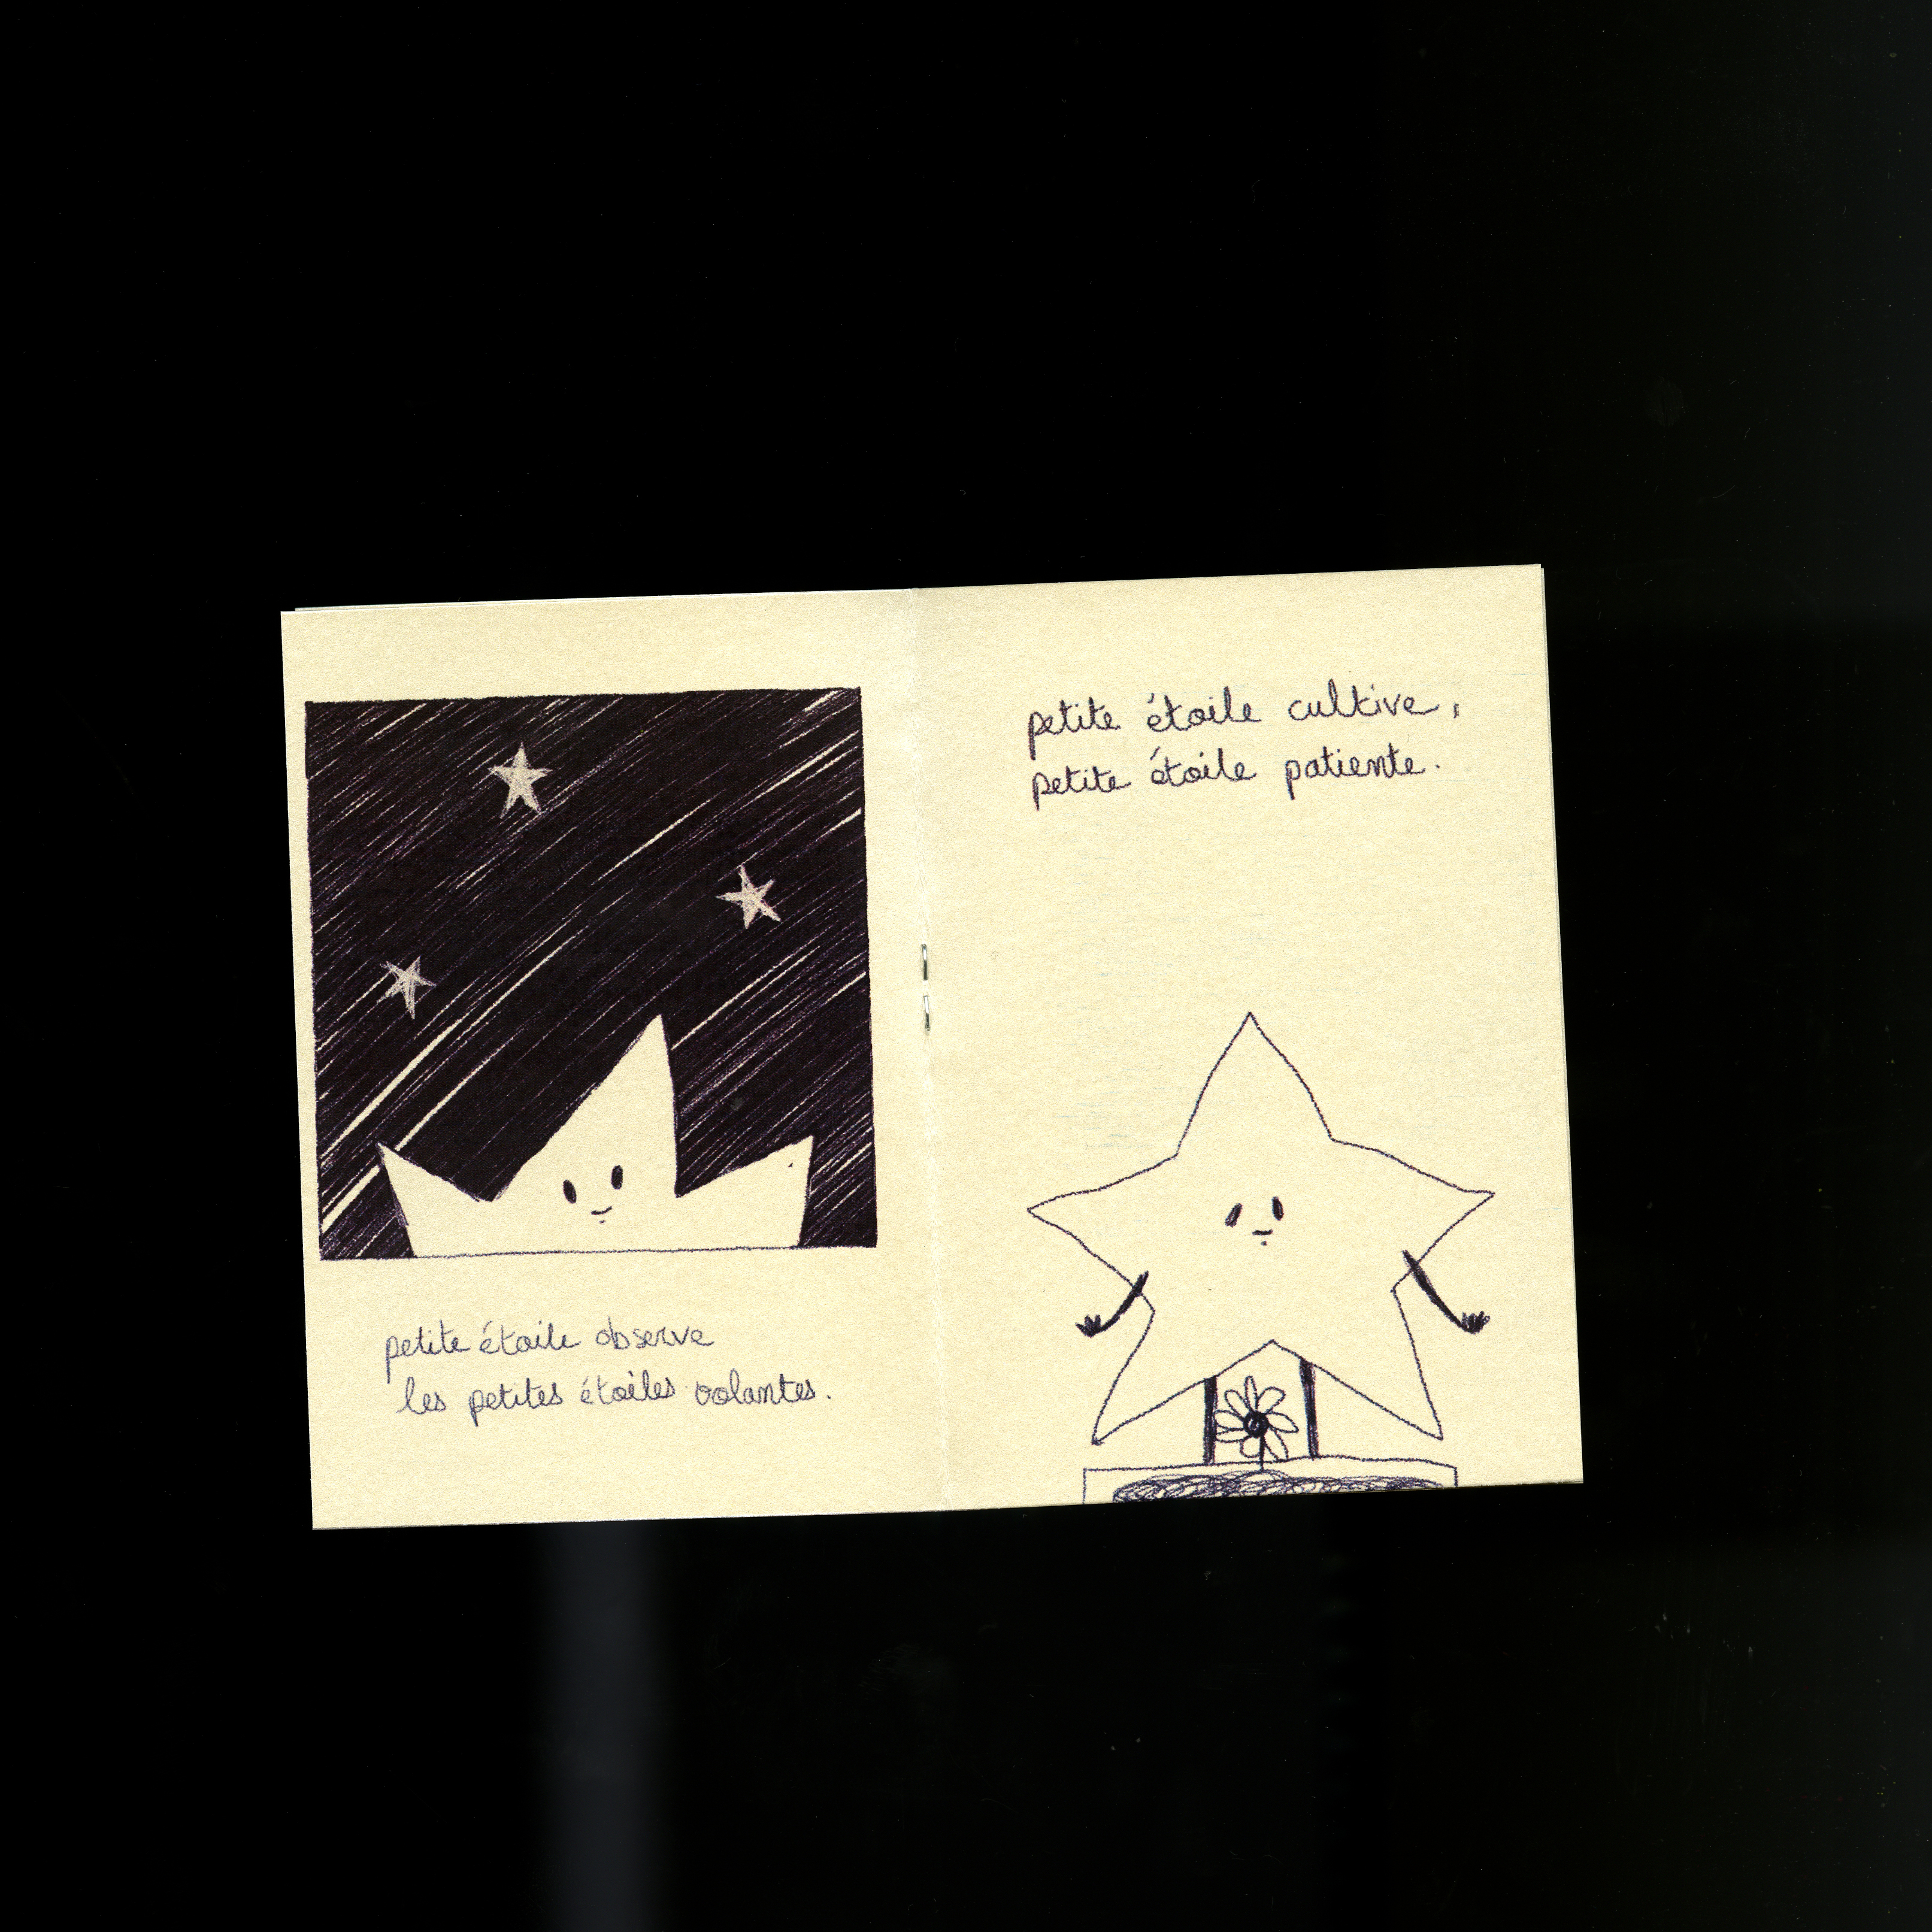 petite étoile observe
les petites étoiles volantes.
petite étoile cultive,
petite étoile patiente.